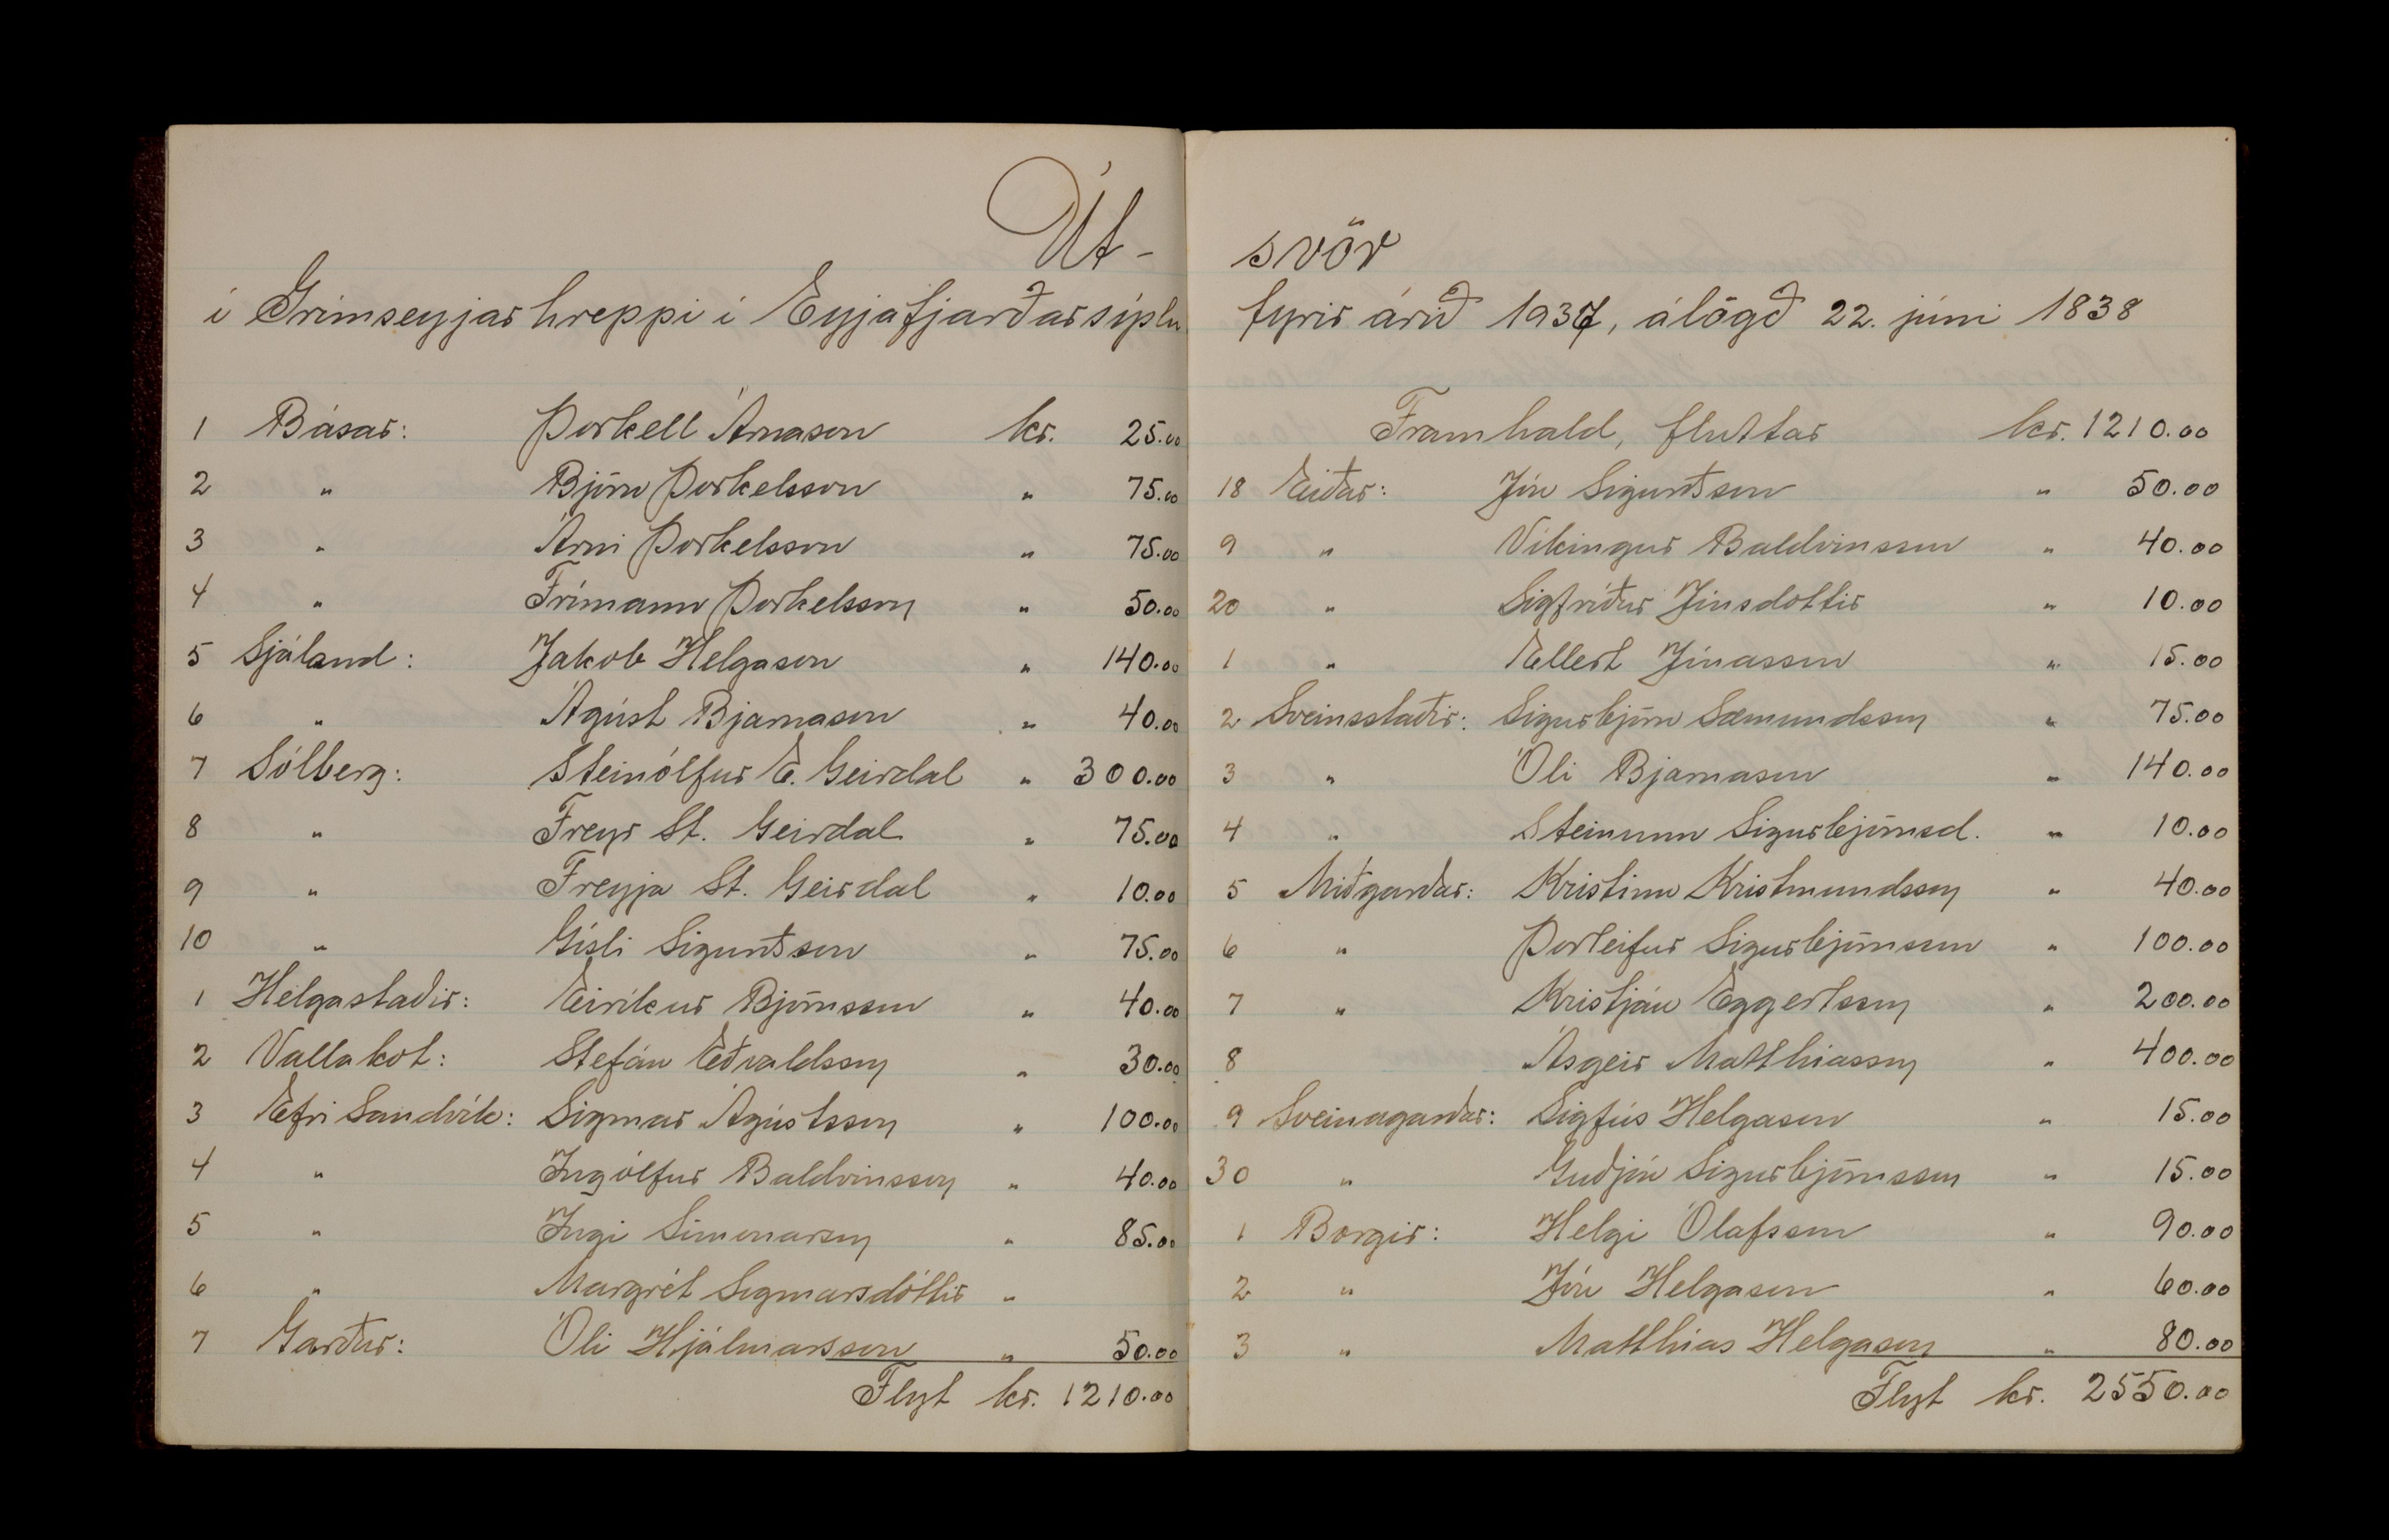 Út-
í Grímseyjarhreppi í Eyjafjarðarsýslu
1 Básar: Þorkell Árnason kr. 25.00
2 " Björn Þorkelsson " 75.00
3 " Árni Þorkelsson " 75.00
4 " Frímann Þorkelsson " 50.00
5 Sjáland: Jakob Helgason " 140.00
6 " Ágúst Bjarnason " 40.00
7 Sólberg: Steinólfur E. Geirdal " 300.00
8 " Freyr St. Geirdal " 75.00
9 " Freyja St. Geirdal " 10.00
10 " Gísli Sigurðsson " 75.00
1 Helgastaðir: Eiríkur Björnsson " 40.00
2 Vallakot: Stefán Eðvaldsson " 30.00
3 Efri Sandvík: Sigmar Ágústsson " 100.00
4 " Ingólfur Baldvinsson " 40.00
5 " Ingi Símonarson " 85.00
6 " Margrét Sigmarsdóttir "
7 Garður: Óli Hjálmarsson " 50.00
Flyt kr. 1210.00
svör
fyrir árið 1937, álögð 22. júní 1838
Framhald, fluttar kr. 1210.00
18 Eiðar: Jón Sigurðsson " 50.00
9 " Víkingur Baldvinsson " 40.00
20 " Sigfríður Jónsdóttir " 10.00
1 " Ellert Jónasson " 15.00
2 Sveinsstaðir: Sigurbjörn Sæmundsson " 75.00
3 " Óli Bjarnason " 140.00
4 " Steinunn Sigurbjörnsd. " 10.00
5 Miðgarðar: Kristinn Kristmundsson " 40.00
6 " Þorleifur Sigurbjörnsson " 100.00
7 " Kristján Eggertsson " 200.00
8 Ásgeir Matthíasson " 400.00
9 Sveinagarðar: Sigfús Helgason " 15.00
30 " Guðjón Sigurbjörnsson " 15.00
1 Borgir: Helgi Ólafsson " 90.00
2 " Jón Helgason " 60.00
3 " Matthías Helgason " 80.00
Flyt kr. 2550.00